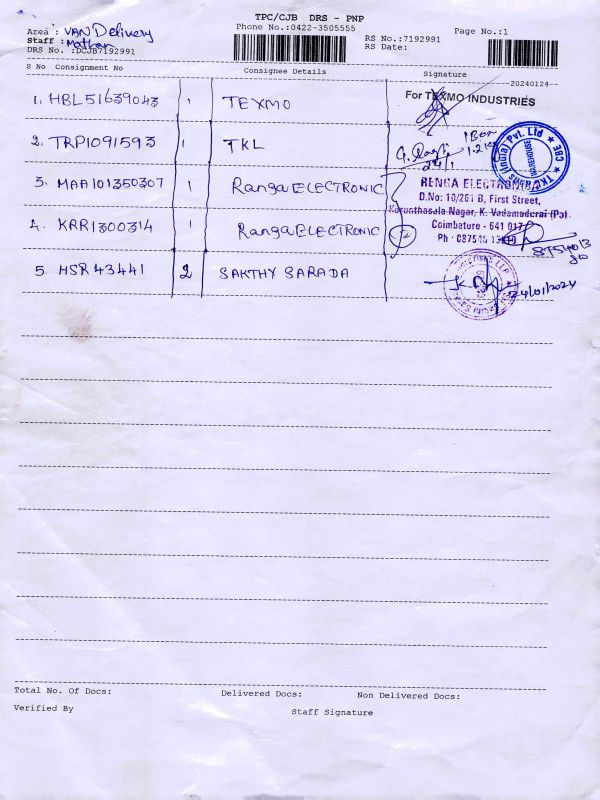 TPC/CJB DRS - PNP
Area : VAN Delivery
Phone No.:0422-3505555
Page No.:1
Staff : Mathan
RS No.:7192991
DRS No. :DCJB7192991
RS Date:
S No Consignment No
Consignee Details
Signature
20240124
1. HBL51639043 1 TEXMO
For TEXMO INDUSTRIES
2. TRP1091593 1 TKL
1 Box
24/1
3. MAA101350307 1 Ranga ELECTRONIC
RENGA ELECTRONIC
D.No: 10/261 B, First Street,
Karunthasala Nagar, K. Vadamadurai (Po)
4. KRR1300314 1 Ranga ELECTRONIC 2
Coimbature - 641 017
5. HSR43441 2 SAKTHY SARADA
24/01/2024
Total No. Of Docs:
Delivered Docs:
Non Delivered Docs:
Verified By
Staff Signature